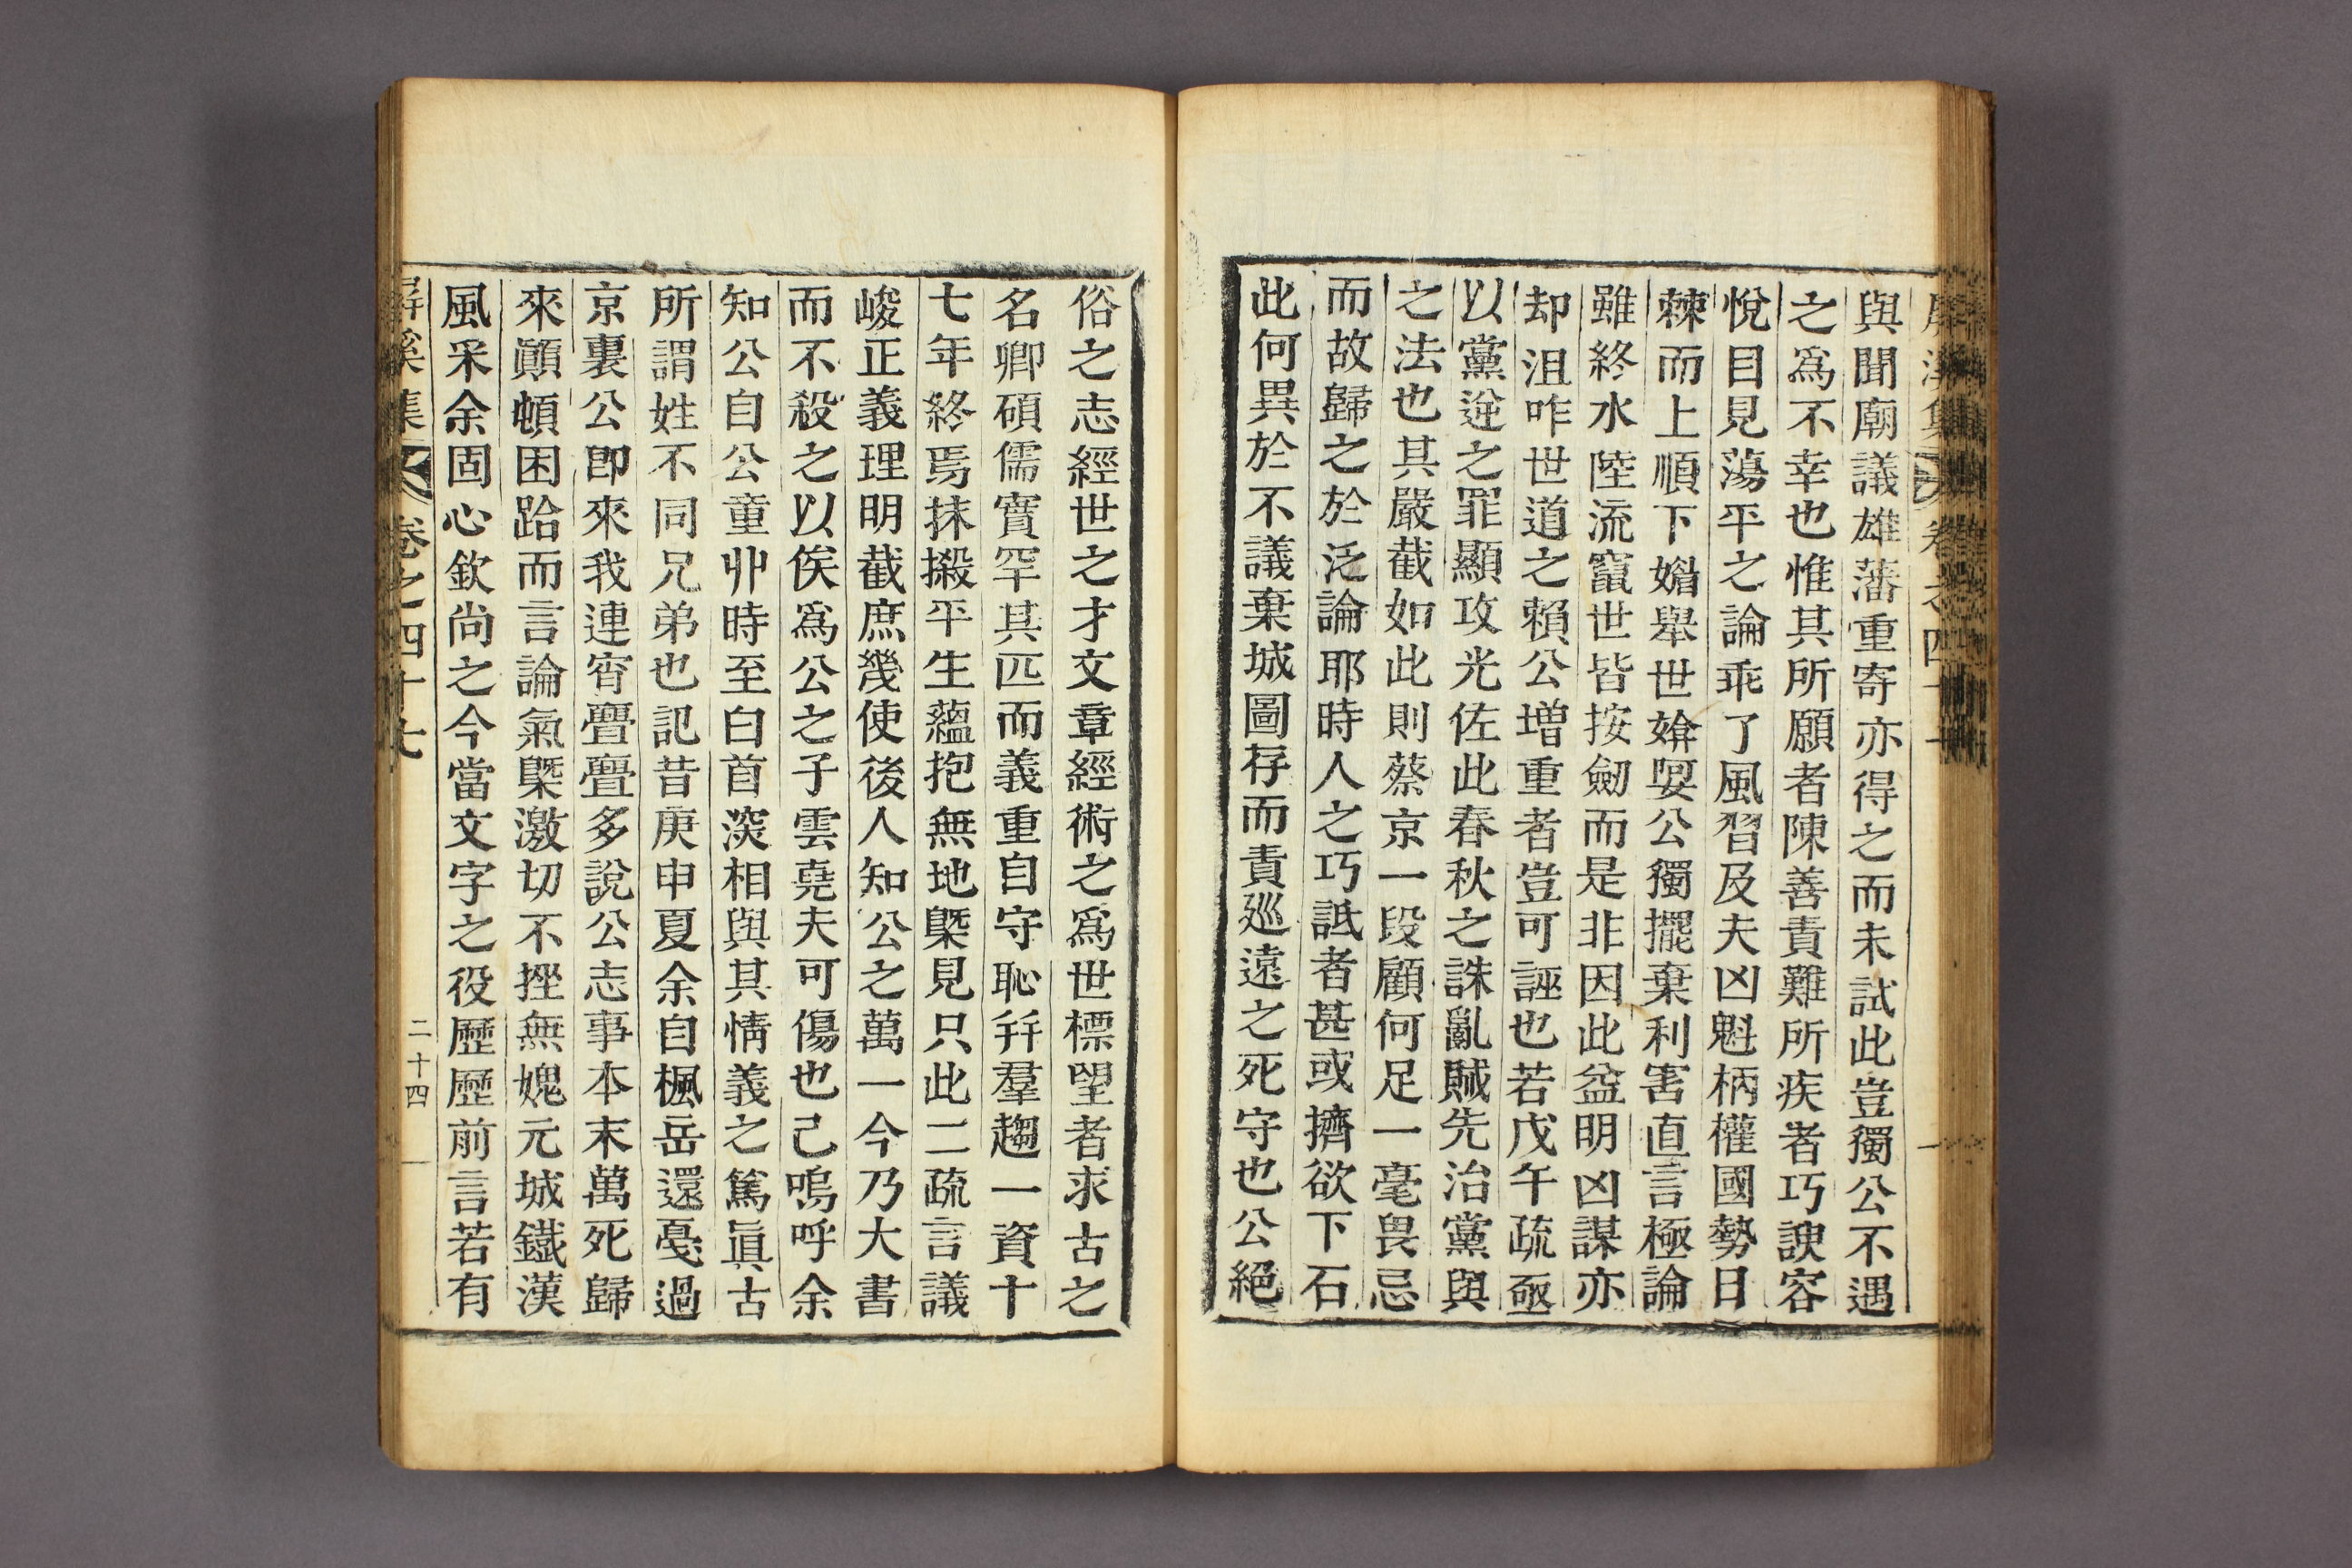 與聞廟議雄藩重寄亦得之而未試此豈獨公不遇
之爲不幸也惟其所願者陳善責難所疾者巧諛容
悅目見蕩平之論乖了風習及夫凶魁柄權國勢日
棘而上順下媚舉世媕婴公獨擺棄利害直言極論
雖終水陸流竄世皆按劒而是非因此益明凶謀亦
却沮咋世道之賴公增重者豈可誣也若戊午疏亟
以黨逆之罪顯攻光佐此春秋之誅亂賊先治黨與
之法也其嚴截如此則蔡京一段顧何足一毫畏忌
而故歸之於泛論耶時人之巧詆者甚或擠欲下石
此何異於不議棄城圖存而責巡遠之死守也公絕
俗之志經世之才文章經術之爲世標望者求古之
名卿碩儒實罕其匹而義重自守恥

羣趨一資十
七年終焉抹摋平生蘊抱無地槩見只此二疏言議
峻正義理明截庶幾使後人知公之萬一今乃大書
而不殺之以俟爲公之子雲堯夫可傷也已嗚呼余
知公自公童丱時至白首深相與其情義之篤眞古
所謂姓不同兄弟也記昔庚申夏余自楓岳還戞過
京裏公卽來我連宵亹亹多說公志事本末萬死歸
來顚頓困跲而言論氣槩激切不挫無媿元城鐵漢
風采余固心欽尚之今當文字之役歷歷前言若有
屛溪集 卷之四十七 二十四